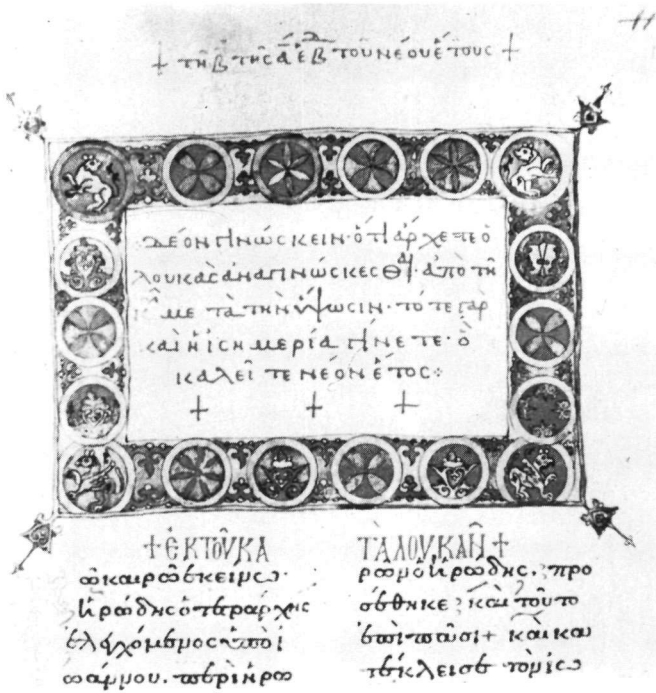 + τῆ β τῆς α ἑβ τοῦ νέου ἔτους +
Δέον γινώσκειν· ὅτι ἄρχετε ὁ
λουκᾶς ἀναγινώσκεσθαι· ἀπὸ τῆ
κυ μετὰ τὴν ὕψωσιν· τότε γὰρ
καὶ ἡ ἰσημερία γίνετε· ὃ
καλεῖτε νέον ἔτος :
+ + +
+ ἐκ τοῦ κα
τὰ λουκᾶν +
ῶ καιρῶ ἐκείνω
ἡρώδης ὁ τετράρχης
ἐλεγχόμενος ὑπὸ ἰ
ωάννου. περὶ ἡρω
προ
σέθηκε καὶ τοῦτο
ἐπὶ πᾶσι + καὶ κα
τέκλεισε τὸν ἰω